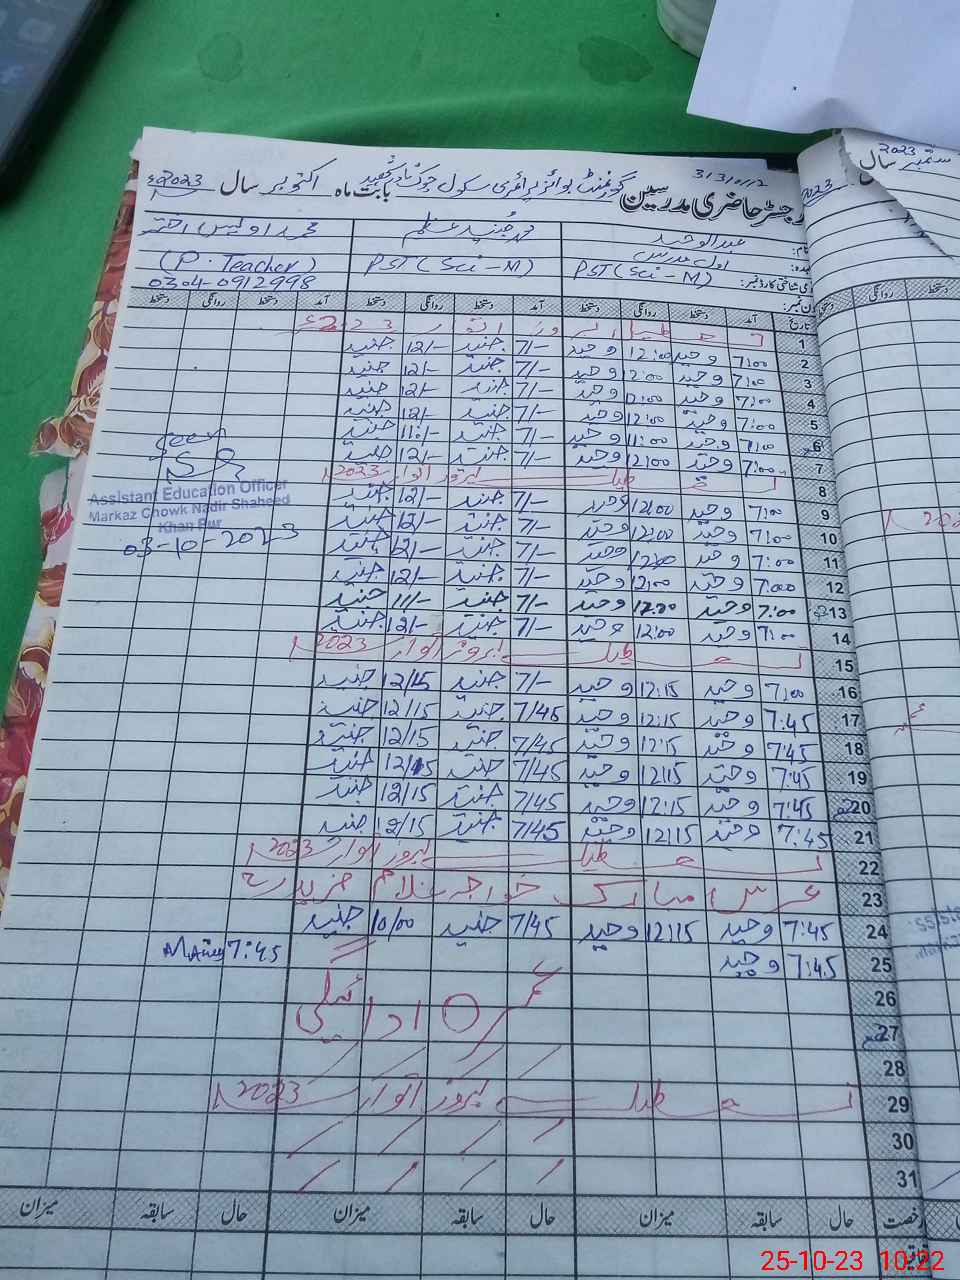 31310112
رجسٹر حاضری مدرسین گورنمنٹ بوائز پرائمری سکول چوک نادر شہید بابت ماہ اکتوبر سال 2023ء
ستمبر 2023 سال
نام: عبدالوحید محمد جنید عظیم محمد اویس اختر
عہدہ: اول مدرس
PST (Sci-M) PST (Sci-M) (P. Teacher)
شناختی کارڈ نمبر: 0304-0912998
تاریخ آمد دستخط روانگی دستخط آمد دستخط روانگی دستخط آمد دستخط روانگی دستخط
1 تعطیل بروز اتوار 2023ء
2 7:00 وحید 12:00 وحید 7/- جنید 12/- جنید
3 7:00 وحید 12:00 وحید 7/- جنید 12/- جنید
4 7:00 وحید 12:00 وحید 7/- جنید 12/- جنید
5 7:00 وحید 12:00 وحید 7/- جنید 12/- جنید
6 7:00 وحید 11:00 وحید 7/- جنید 11/- جنید
7 7:00 وحید 12:00 وحید 7/- جنید 12/- جنید
8 تعطیل بروز اتوار 2023ء
9 7:00 وحید 12:00 وحید 7/- جنید 12/- جنید
10 7:00 وحید 12:00 وحید 7/- جنید 12/- جنید
11 7:00 وحید 12:00 وحید 7/- جنید 12/- جنید
12 7:00 وحید 12:00 وحید 7/- جنید 12/- جنید
13 7:00 وحید 12:00 وحید 7/- جنید 11/- جنید
14 7:00 وحید 12:00 وحید 7/- جنید 12/- جنید
15 تعطیل بروز اتوار 2023ء
16 7:00 وحید 12:15 وحید 7/- جنید 12/15 جنید
17 7:45 وحید 12:15 وحید 7/45 جنید 12/15 جنید
18 7:45 وحید 12:15 وحید 7/45 جنید 12/15 جنید
19 7:45 وحید 12:15 وحید 7/45 جنید 12/15 جنید
20 7:45 وحید 12:15 وحید 7/45 جنید 12/15 جنید
21 7:45 وحید 12:15 وحید 7/45 جنید 12/15 جنید
22 تعطیل بروز اتوار 2023ء
23 عرس مبارک خواجہ غلام فرید
24 7:45 وحید 12:15 وحید 7/45 جنید 10/00 جنید
25 7:45 وحید 7:45
26 عمرہ ادائیگی
27
28
29 تعطیل بروز اتوار 2023ء
30
31
رخصت حال سابقہ میزان حال سابقہ میزان حال سابقہ میزان
Assistant Education Officer
Markaz Chowk Nadir Shaheed
Khan Pur
03-10-2023
25-10-23 10:22